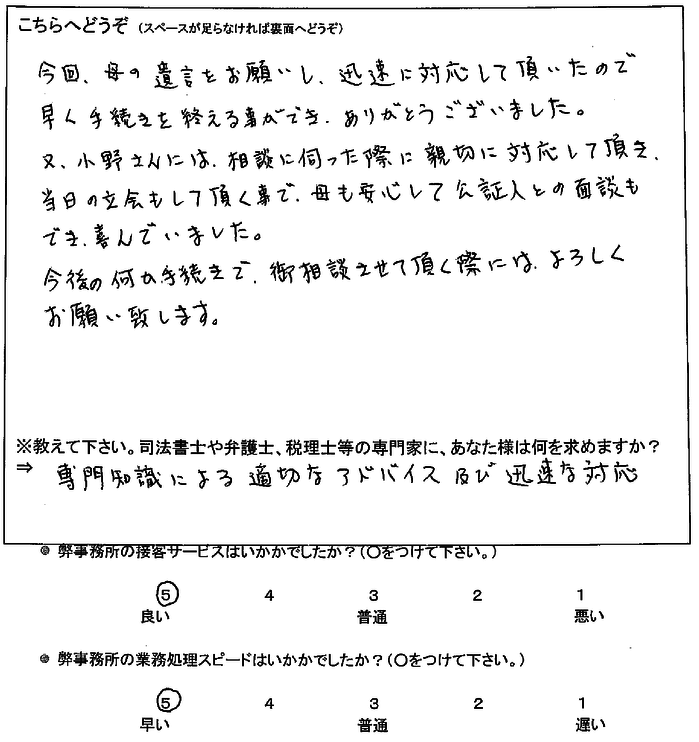 こちらへどうぞ（スペースが足らなければ裏面へどうぞ）
今回、母の遺言をお願いし、迅速に対応して頂いたので
早く手続きを終える事ができ、ありがとうございました。
又、小野さんには、相談に伺った際に親切に対応して頂き、
当日の立会もして頂く事で、母も安心して公証人との面談も
でき、喜んでいました。
今後の何か手続きで、御相談させて頂く際には、よろしく
お願い致します。
※教えて下さい。司法書士や弁護士、税理士等の専門家に、あなた様は何を求めますか？
⇒ 専門知識による適切なアドバイス及び迅速な対応
● 弊事務所の接客サービスはいかかでしたか？（○をつけて下さい。）
5 4 3 2 1
良い 普通 悪い
● 弊事務所の業務処理スピードはいかかでしたか？（○をつけて下さい。）
5 4 3 2 1
早い 普通 遅い